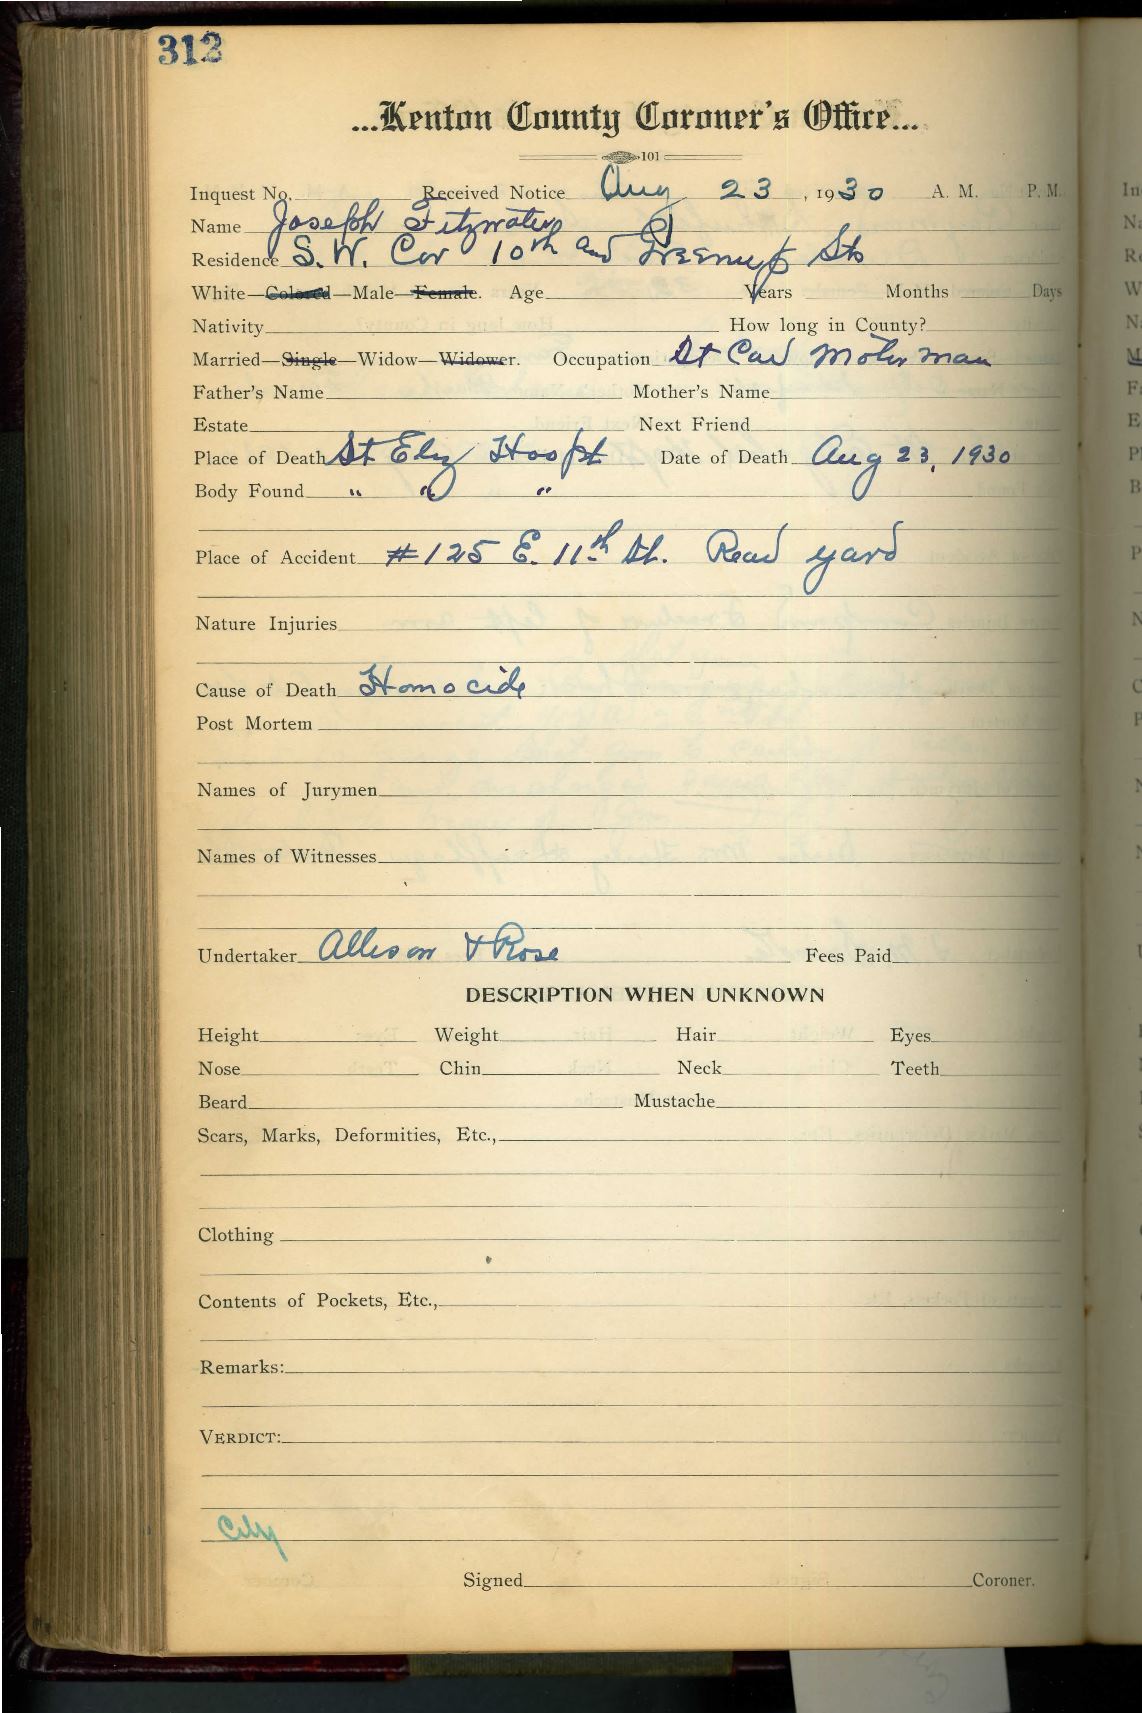 312
...Kenton County Coroner's Office...
101
Inquest No. Received Notice Aug 23, 1930 A. M. P. M.
Name Joseph Fitzwater
Residence S. W. Cor 10th and Greenup Sts
White—Colored—Male—Female. Age Years Months Days
Nativity How long in County?
Married—Single—Widow—Widower. Occupation St Car Motorman
Father's Name Mother's Name
Estate Next Friend
Place of Death St Eliz Hospt Date of Death Aug 23, 1930
Body Found " " "
Place of Accident #125 E. 11th St. Rear yard
Nature Injuries
Cause of Death Homocide
Post Mortem
Names of Jurymen
Names of Witnesses
Undertaker Allison & Rose Fees Paid
DESCRIPTION WHEN UNKNOWN
Height Weight Hair Eyes
Nose Chin Neck Teeth
Beard Mustache
Scars, Marks, Deformities, Etc.,
Clothing
Contents of Pockets, Etc.,
Remarks:
VERDICT:
City
Signed Coroner.